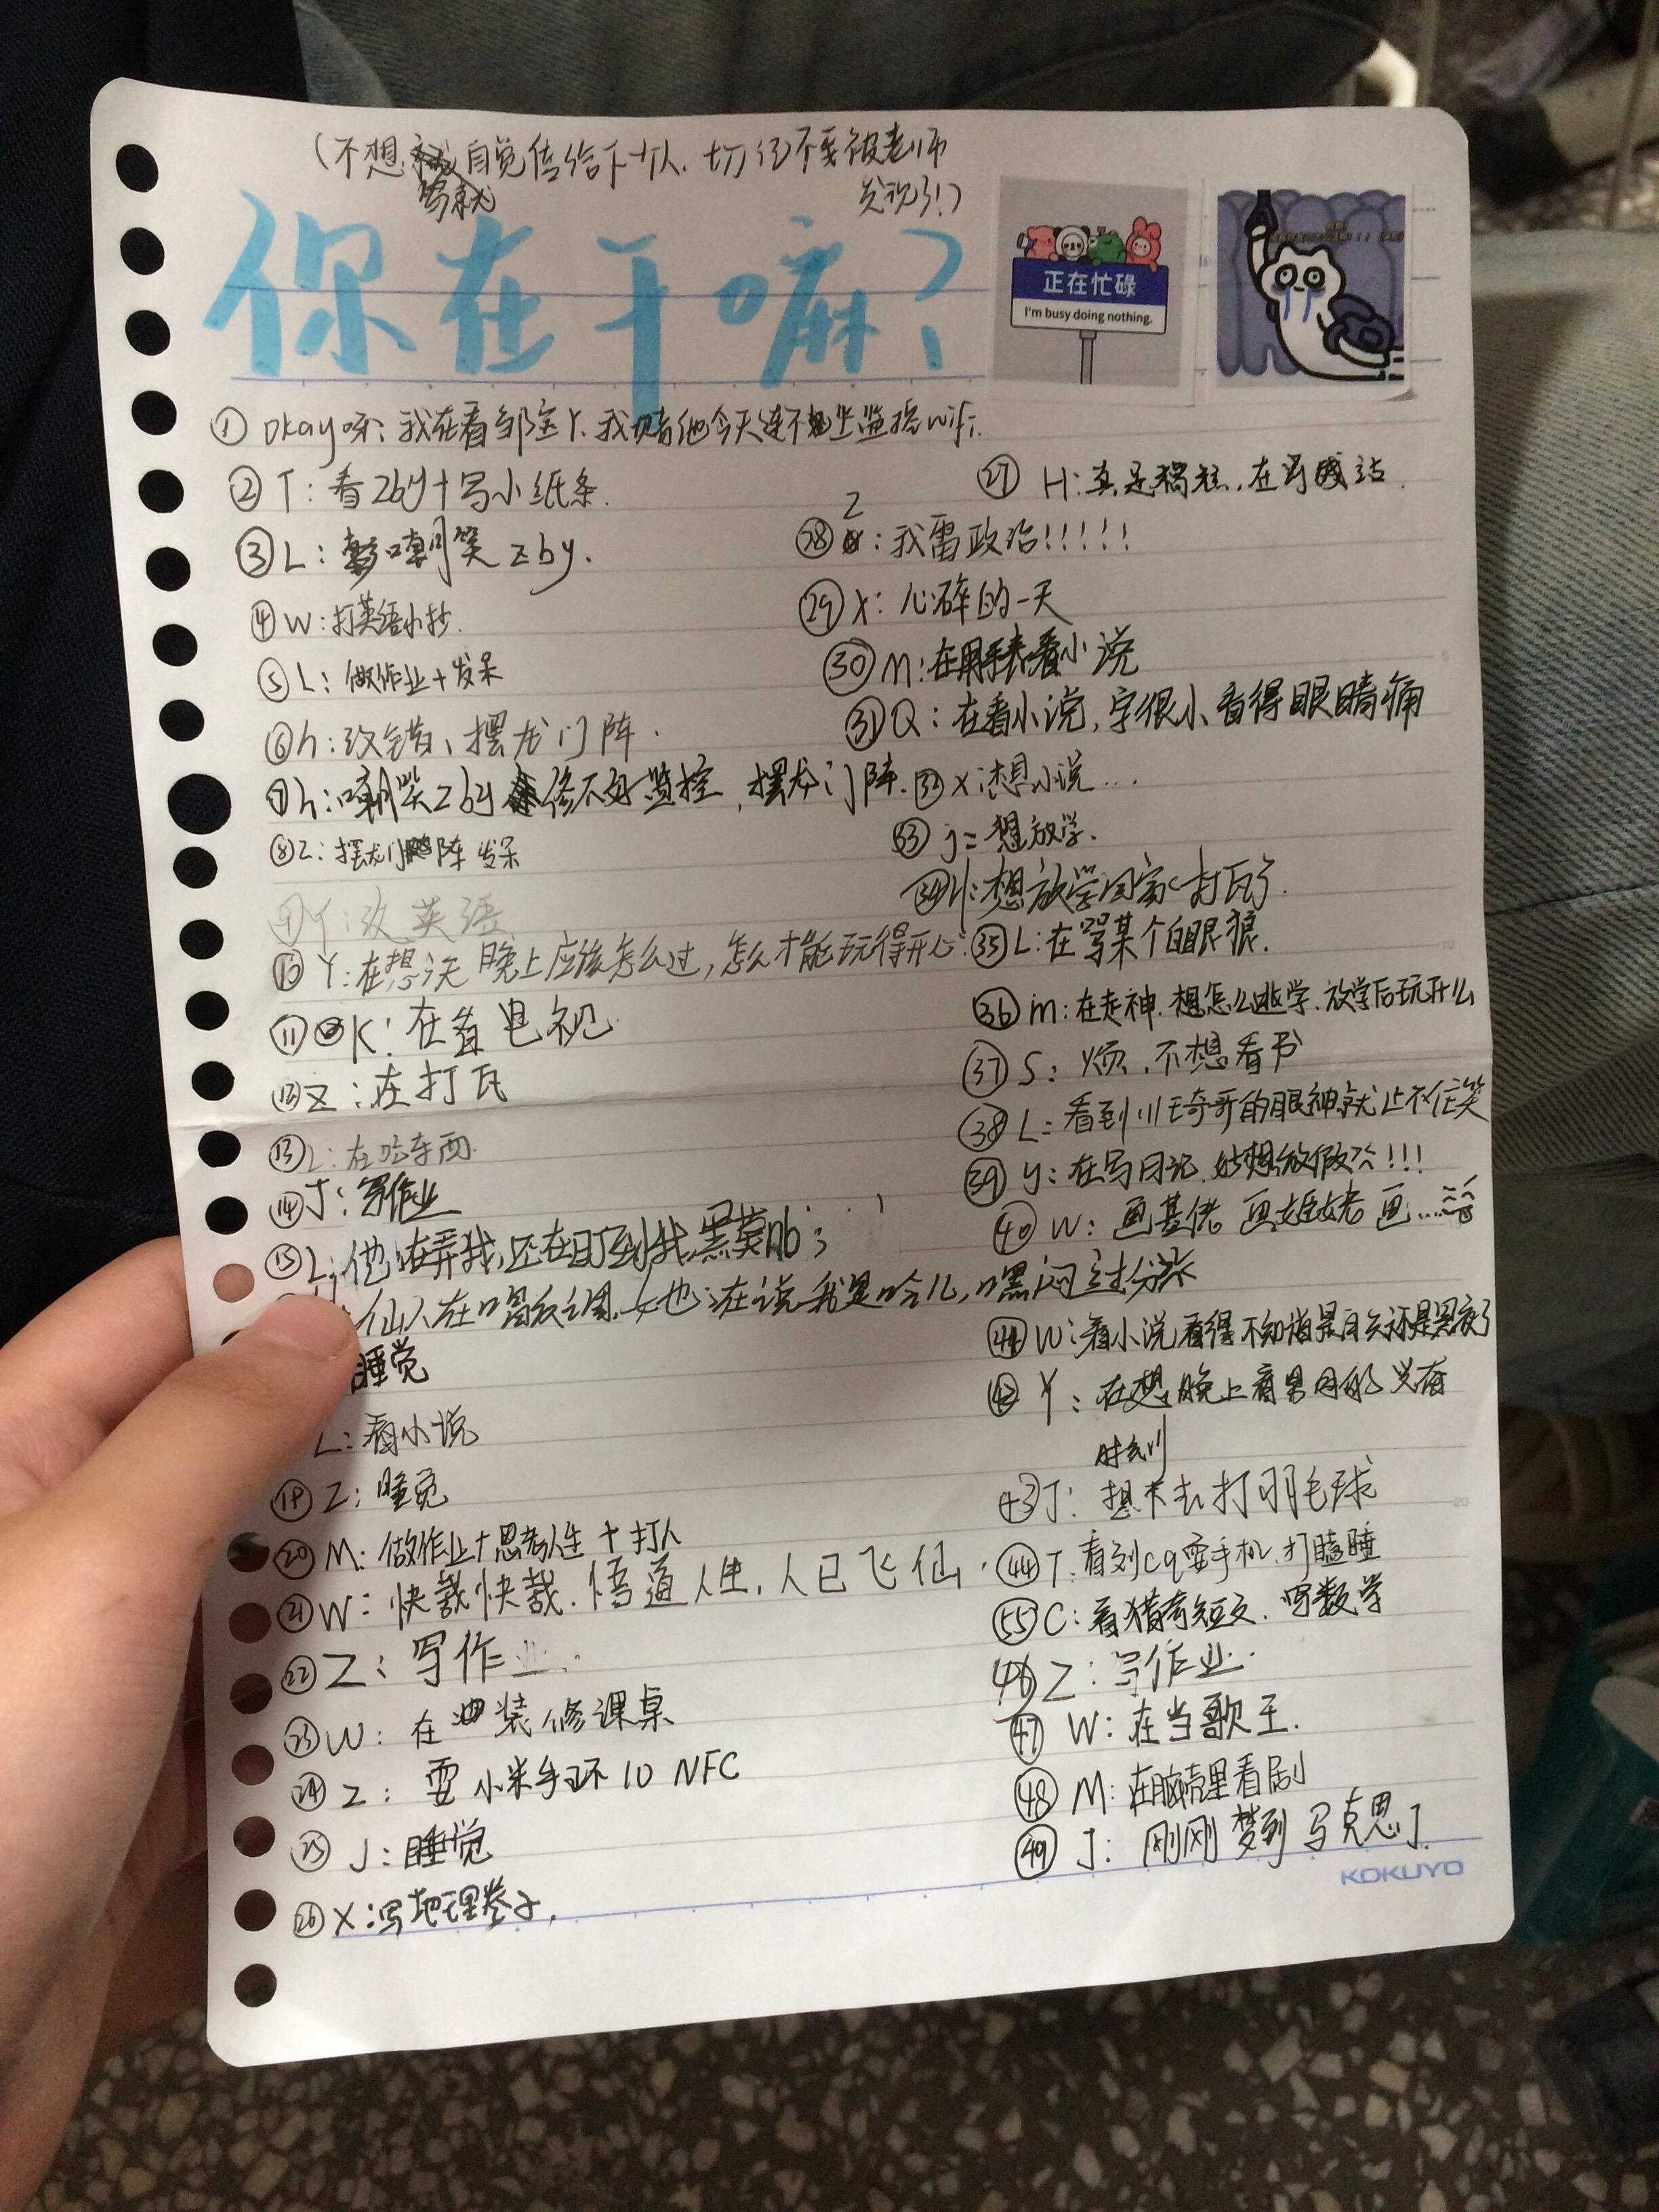 (不想写就自觉传给下一个人.切记不要被老师
发现了!)
你在干嘛?
正在忙碌
I'm busy doing nothing.
① okay呀:我在看邹宝.我赌他今天连不上监控wifi.
② T:看zby+写小纸条.
③ L:嘲笑zby.
④ W:打英语小抄.
⑤ L:做作业+发呆
⑥ h:改错、摆龙门阵.
⑦ h:嘲笑zby修不好监控,摆龙门阵.
⑧ Z:摆龙门阵 发呆
⑨ Y:改英语
⑩ Y:在想 晚上应该怎么过,怎么才能玩得开心.
⑪ K:在看电视
⑫ Z:在打瓦
⑬ L:在吃东西.
⑭ J:写作业
⑮ L:他在弄我,还在盯到我,黑莫nb;
仙人在 她还在说我是哈儿,嘿闷 过分
睡觉
L:看小说
⑲ Z:睡觉
⑳ M:做作业+思考人生+打人
㉑ W:快哉快哉.悟道人生,人已飞仙.
㉒ Z:写作业..
㉓ W:在装修课桌
㉔ Z:耍小米手环10 NFC
㉕ J:睡觉
㉖ X:写地理卷子.
㉗ H:真是糟糕,在
㉘ Z:我雷政治!!!!!
㉙ X:心碎的一天
㉚ M:在用手表看小说
㉛ Q:在看小说,字很小看得眼睛痛
㉜ X:想小说...
㉝ j:想放学.
㉞ :想放学回家打瓦了.
㉟ L:在骂某个白眼狼.
㊱ m:在走神.想怎么逃学.放学后玩什么
㊲ S:烦,不想看书
㊳ L:看到川王奇哥的眼神就止不住笑
㊴ y:在写日记,好想放假!!!
㊵ W:画基佬 画 画...
㊶ W:看小说看得不知道是白天还是黑夜了
㊷ Y:在想晚上看男团的兴奋
时刻
㊸ J:想下去打羽毛球
㊹ T:看到cq耍手机,打瞌睡
55 C:看猎奇短文.写数学
㊻ Z:写作业..
㊼ W:在当歌王.
㊽ M:在脑壳里看剧
㊾ J:刚刚梦到马克思了.
KOKUYO